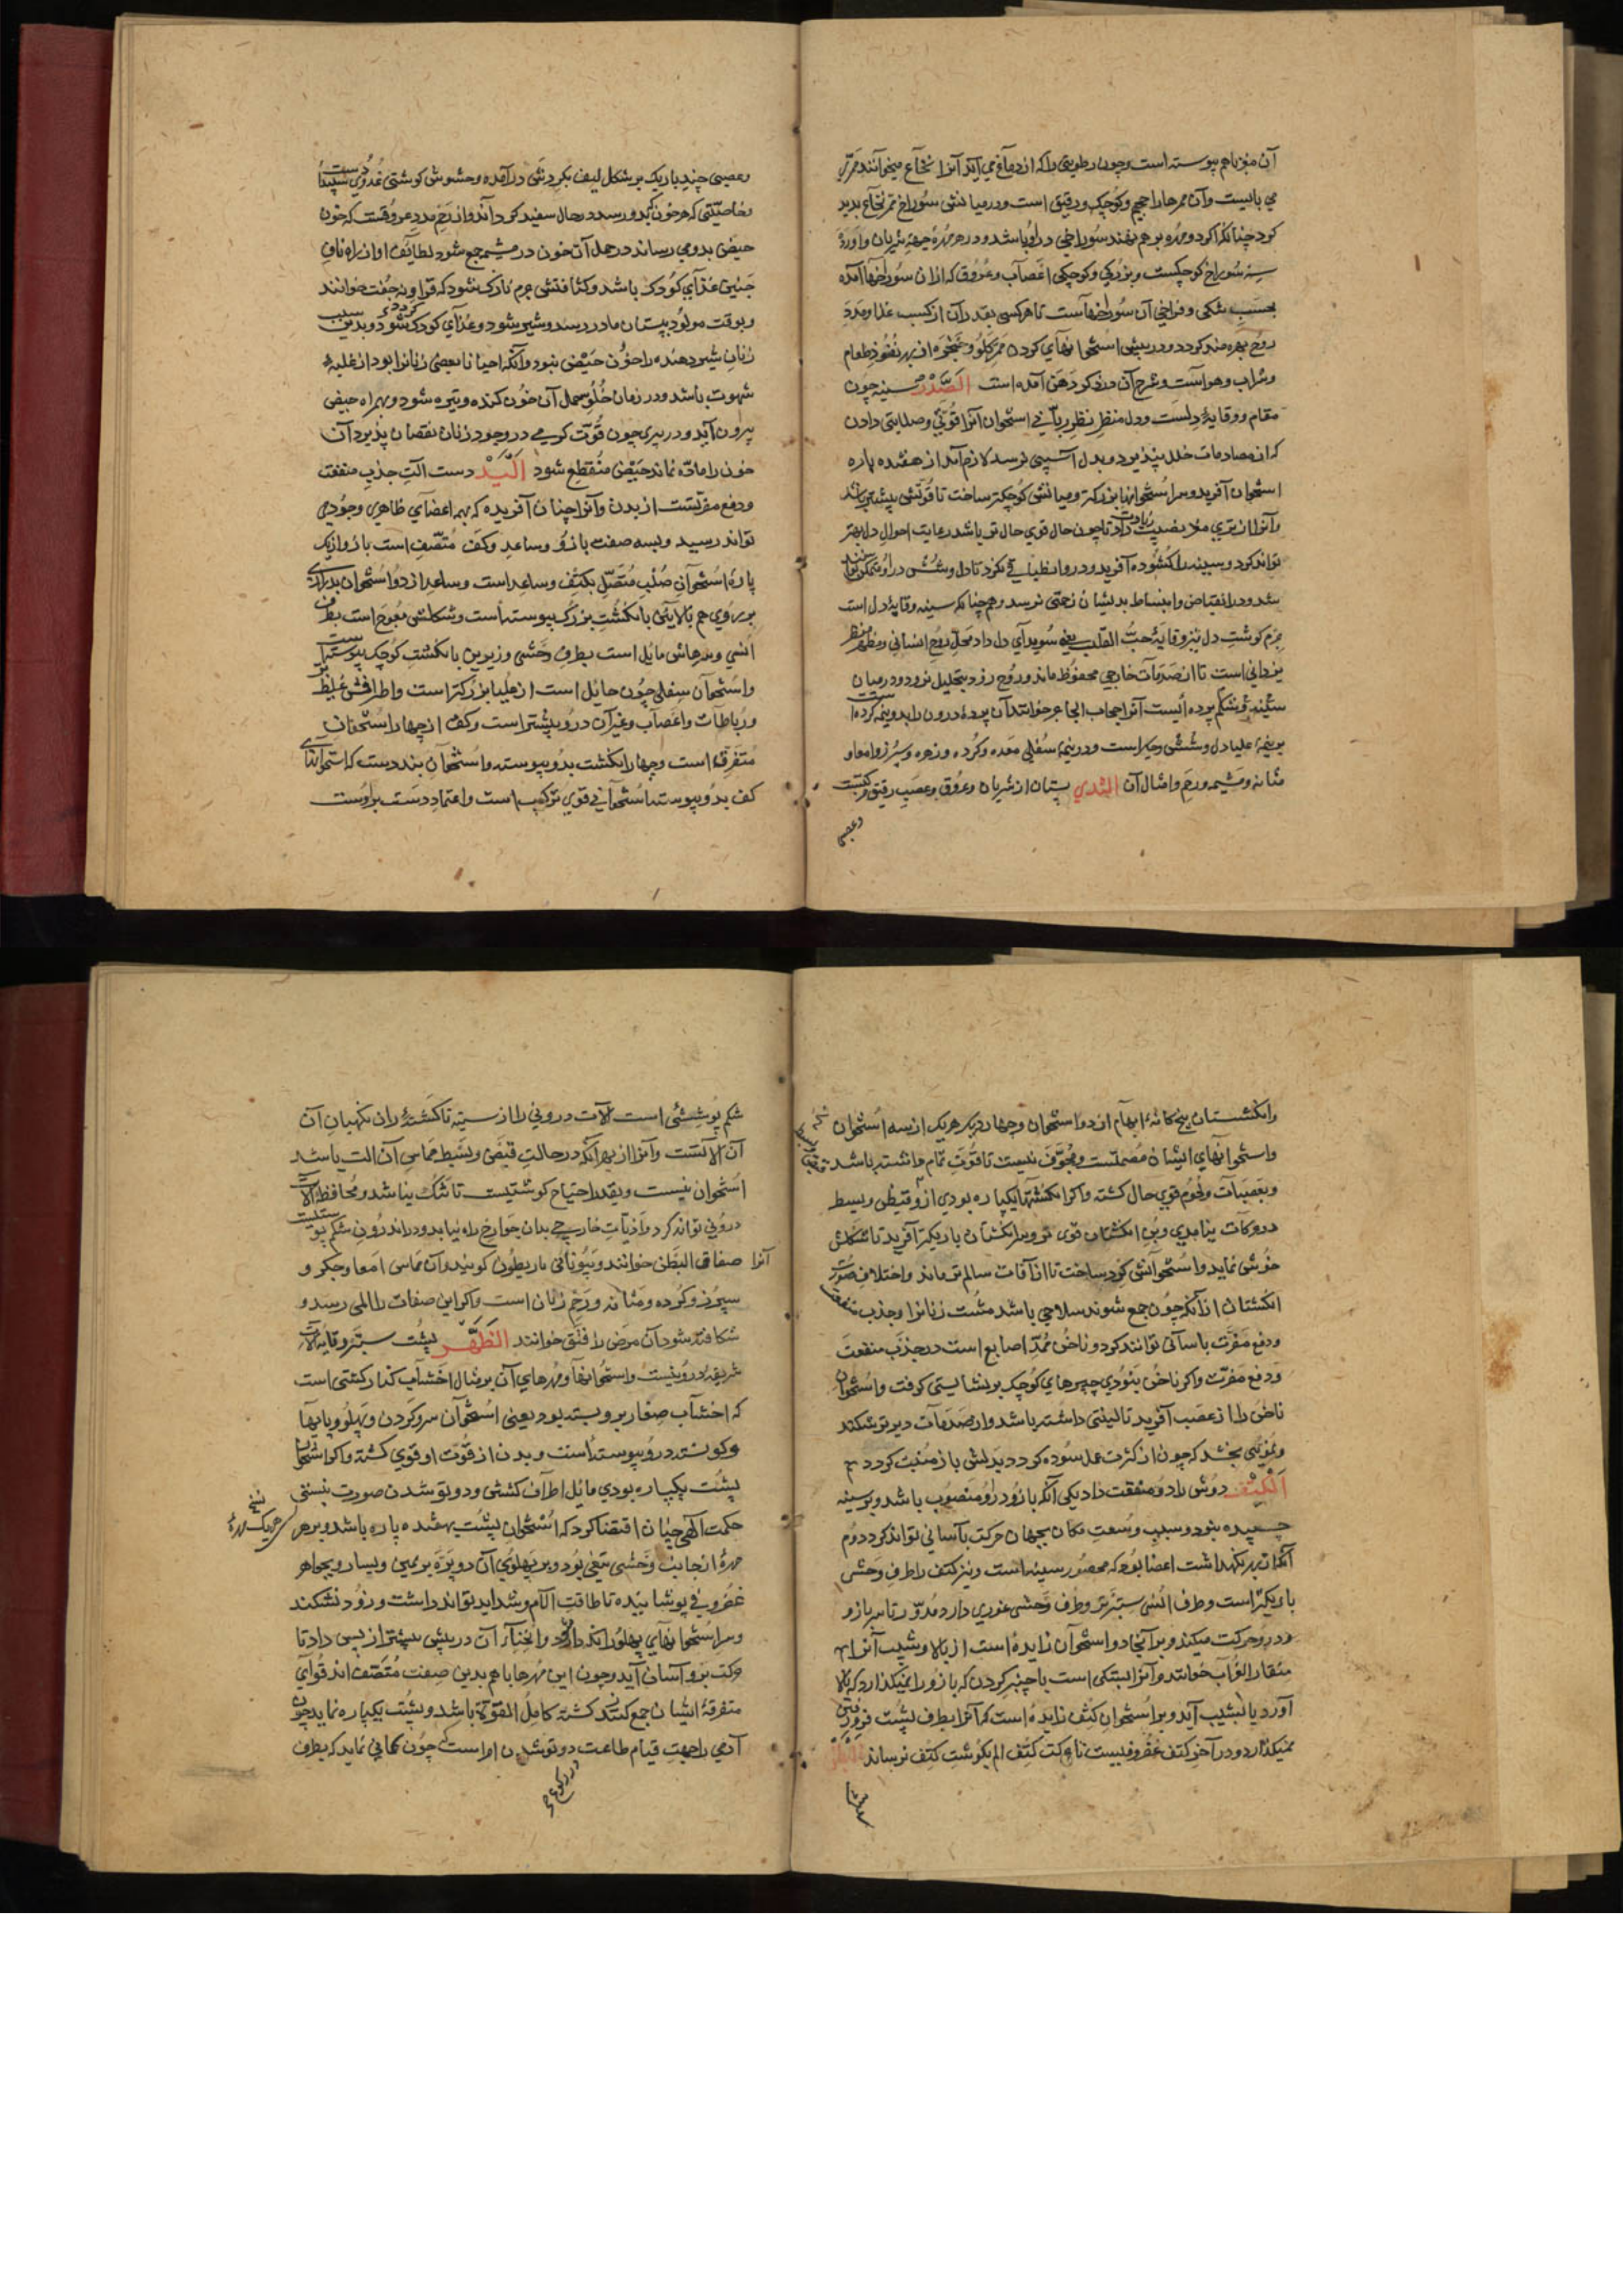 آن مغز باهم پیوسته است و چون رطوبتی را که از دماغ می آید آنرا نخاع میخوانند ممرّی
می بایست و آن ممرها را حجم کوچک و رقیق است و در میانش سوراخ ممر نخاع پدید
کرد چنانکه اگر دو مهره بر هم نهند سوراخی در او باشد و در هر مهره جهة شریان و اورده
سه سوراخ کوچکست و بزرگی و کوچکی اعصاب و عروق که ازان سوراخها آمده
بحسب تنگی و فراخی آن سوراخهاست تا هر کسی بقدر آن از کسب غذا و مدد
روح بهره مند کردد و در پیش استخوانهای کردن ممر حلقوم و حنجره از بهر نفوذ طعام
و شراب و هواست و شرح آن در ذکر دهن آمده است الصّدر سینه چون
مقام و وقایهٔ دلست و دل منظر نظر ربانی استخوان آنرا قوتی و صلابتی دادن
که از مصادمات خلل نپذیرد و بدل آسیبی نرسد لازم آمد از هفده پاره
استخوان آفرید و سر استخوانها بزرکتر و میانش کوچکتر ساخت تا قوتش بیشتر باشد
وآنرا از دیگری صلابت زیادت داد تا چون حال قوی حال تر باشد رعایت احوال دل بهتر
تواند کرد و سینه را کشوده آفرید و در و انطباقی نکرد تا دل و شش در او متمکن توانند
شد و در انقباض و انبساط بدیشان زحمتی نرسد و همچنانکه سینه وقایهٔ دل است
جرم کوشت دل نیز وقایهٔ حبّ القلب یعنی سویدای دل داد محل روح انسانی و منظر
یزدانی است تا از صدمات خارجی محفوظ ماند و روح زود بتحلیل نرود و در میان
سینه و شکم پرده ایست آنرا حجاب الحاجز خوانند آن پرده درون را بدو نیمه کرده است
بر نیمهٔ علیا دل و شش و جگر است و در نیمهٔ سفلی معده و کرده و زهره و سپرز و امعا و
مثانه و مشیمه و رحم و امثال آن الثّدی پستان از شریان و عروق و عصب رقیق مرکبست
وعصبی
وعصبی چند باریک بر شکل لیف بکردش درآمده و حشوش کوشتی غدودی سپیدست
و خاصیّتی که هر خون که بدو رسد در حال سفید کرداند و از رحم بدو عروقست که خون
حیض بدو می رساند در حمل آن خون در مشیمه جمع شود لطایف او از راه ناف
جنین غذای کودک باشد و کثافتش جرم نازک شود که قرا و نه جفت خوانند
و بوقت مولود بپستان مادر رسد و شیر شود و غذای کودک شود و بدین سبب
زنان شیر دهنده را خون حیض نبود و آنکه احیانا بعضی زنانرا بود از غلبهٔ
شهوت باشد و در زمان خلو حمل آن خون کنده و تیره شود و بهر ماه حیض
بیرون آید و در پیری چون قوت کرمی در وجود زنان نقصان پذیرد آن
خون را مادّه نماند حیض منقطع شود الیَد دست الت جذب منفعت
و دفع مضرّتست از بدن و آنرا چنان آفریده که بهمه اعضای ظاهری وجود می
تواند رسید و بسه صفت بازو و ساعد و کف متصف است بازو از یک
پارهٔ استخوان صلب متّصل بکتف و ساعد است و ساعد از دو استخوان بدرازی
بر روی هم بالایش با انکشت بزرک پیوسته است و شکلش معوج است بطرف
انسی و سرهاش مائل است بطرف وحشی و زیرین با انکشت کوچک پیوسته است
و استخوان سفلی چون حائل است از علیا بزرکتر است و اطرافش غلیظ
و رباطات و اعصاب و غیر آن درو بیشتر است و کف از چهار استخوان
متفرقه است و چهار انکشت بدو پیوسته و استخوان بند دست که استخوانهای
کف بدو پیوسته استخوانی قوی ترکیب است و اعتماد دست براوست
وانکشتان پنج کانه ابهام از دو استخوان و چهار دیکر هر یک از سه استخوان
و استخوانهای ایشان مصمتست و مجوّف نیست تا قوت تمام داشته باشد
و بعصبات و لحوم قوی حال کشته و اکر انکشتها یکپاره بودی ازو قبض و بسط
در حرکات نیامدی و بن انکشتان قوی تر و سر انکشتان باریکتر آفرید تا شکلش
خوش نماید و استخوانش کرد ساخت تا از آفات سالم تر ماند و اختلاف صورت
انکشتان از آنکه چون جمع شوند سلاحی باشد مشت زنانرا و جذب منفعت
و دفع مضرت باسانی توانند کرد و ناخن ممدّ اصابع است در جذب منفعت
و دفع مضرّت و اکر ناخن نبودی چیزهای کوچک برنشایستی کرفت و استخوان
ناخن را از عصب آفرید تا لینتی داشته باشد و از صدمات دیر تر شکند
و نموی بخشد که چون از کثرت عمل سوده کردد بدلش باز منبت کردد
الکتف دوش را دو منفعت داد یکی آنکه بازو درو منصوب باشد و بر سینه
چسپیده نبود و بسبب وسعت مکان بجهات حرکت بآسانی تواند کرد دوم
آنکه از بهر نکهداشت اعضا بود که محصور سینه است و نیز کتف را طرف وحشی
باریکتر است و طرف انسی ستبرتر و طرف وحشی غوری دارد مدوّر تا سر بازو
درو حرکت میکند و بر آنجا دو استخوان زایده است از بالا و شیب آنرا
منقار الغراب خوانند و آنرا بستکی است با چنبر کردن که بازو را نمیکذارد که بالا
آورد یا بشیب آید و بر استخوان کتف زایده است که آنرا بطرف پشت فرو رفتن
نمیکذارد و در آخر کتف غضروفیست تا حرکت کتف الم بکوشت کتف نرساند
شکم پوششی است آلات درونی را از سینه تا کشتهٔ ران نکهبان آن
آن آلاتست و آنرا از بهر آنکه در حالت قبض و بسط مماس آن الت باشد
استخوان نیست و بقدر احتیاج کوشتیست تا تنک نباشد و محافظهٔ آلات
درونی تواند کرد و اذیات خارجی بدان جوارح راه نیابد و در اندرون شکم پوستیست
آنرا صفاق البطن خوانند و بیونانی باریطون کویند و آن مماس امعا و جکر و
سپرز و کرده و مثانه و رحم زنان است و اکر این صفات را المی رسد و
شکافته شود آن مرض را فتق خوانند الظهر پشت ستبر وقایهٔ آلات
شریفهٔ درونیست و استخوانها و مهرهای آن بر مثال اخشاب کنار کشتی است
که اخشاب صغار برو بسته بود یعنی استخوان سر و کردن و پهلو و پایها
و کونه درو پیوسته است و بدن از قوت او قوی کشته و اکر استخوان
پشت یکپاره بودی مایل اطراف کشتی و دوتو شدن صورت نبستی
حکمت الهی چنان اقتضا کرد که استخوان پشت بهفده پاره باشد و بر هر
مهره از جانب وحشی تیغی بود و بر پهلوی آن دو پرّه بر یمین و یسار و بجواهر
غضروفی پوشانیده تا طاقت آلام و شداید تواند داشت و زود نشکند
و سر استخوانهای پهلو را نکه دارد و انحناء آن در پیش بیشتر از پس داد تا
حرکت برو آسان آید و چون این مهرها باهم بدین صفت متصف اند قوای
متفرقهٔ ایشان جمع کشته کامل القوة باشد و پشت یکپاره نماید چون
آدمی را جهت قیام طاعت دوتو شدن او راست چون کمانی نماید که بطرف
در رکوع